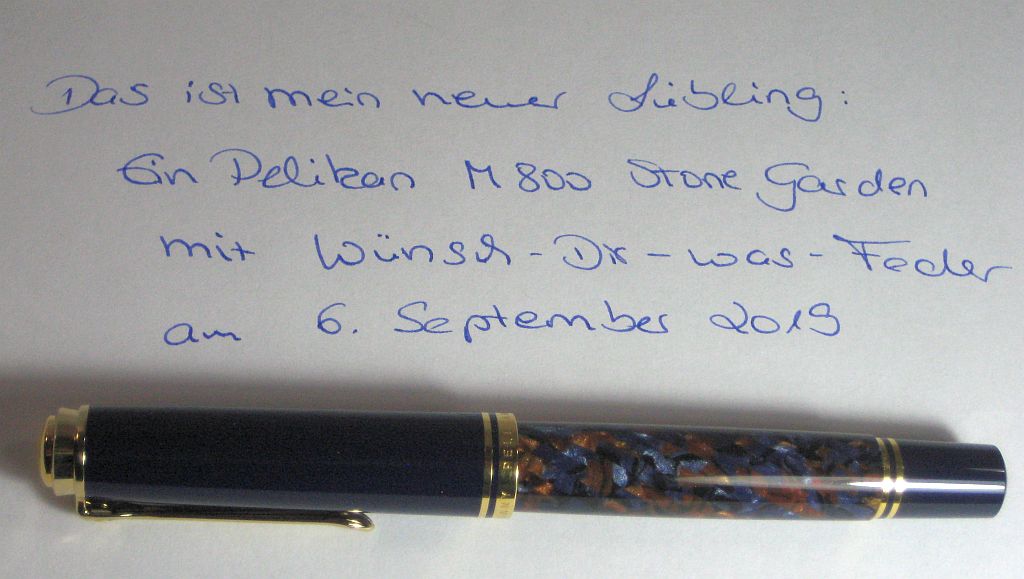 Das ist mein neuer Liebling:
Ein Pelikan M800 Stone Garden
mit Wünsch-Dir-was-Feder
am 6. September 2019